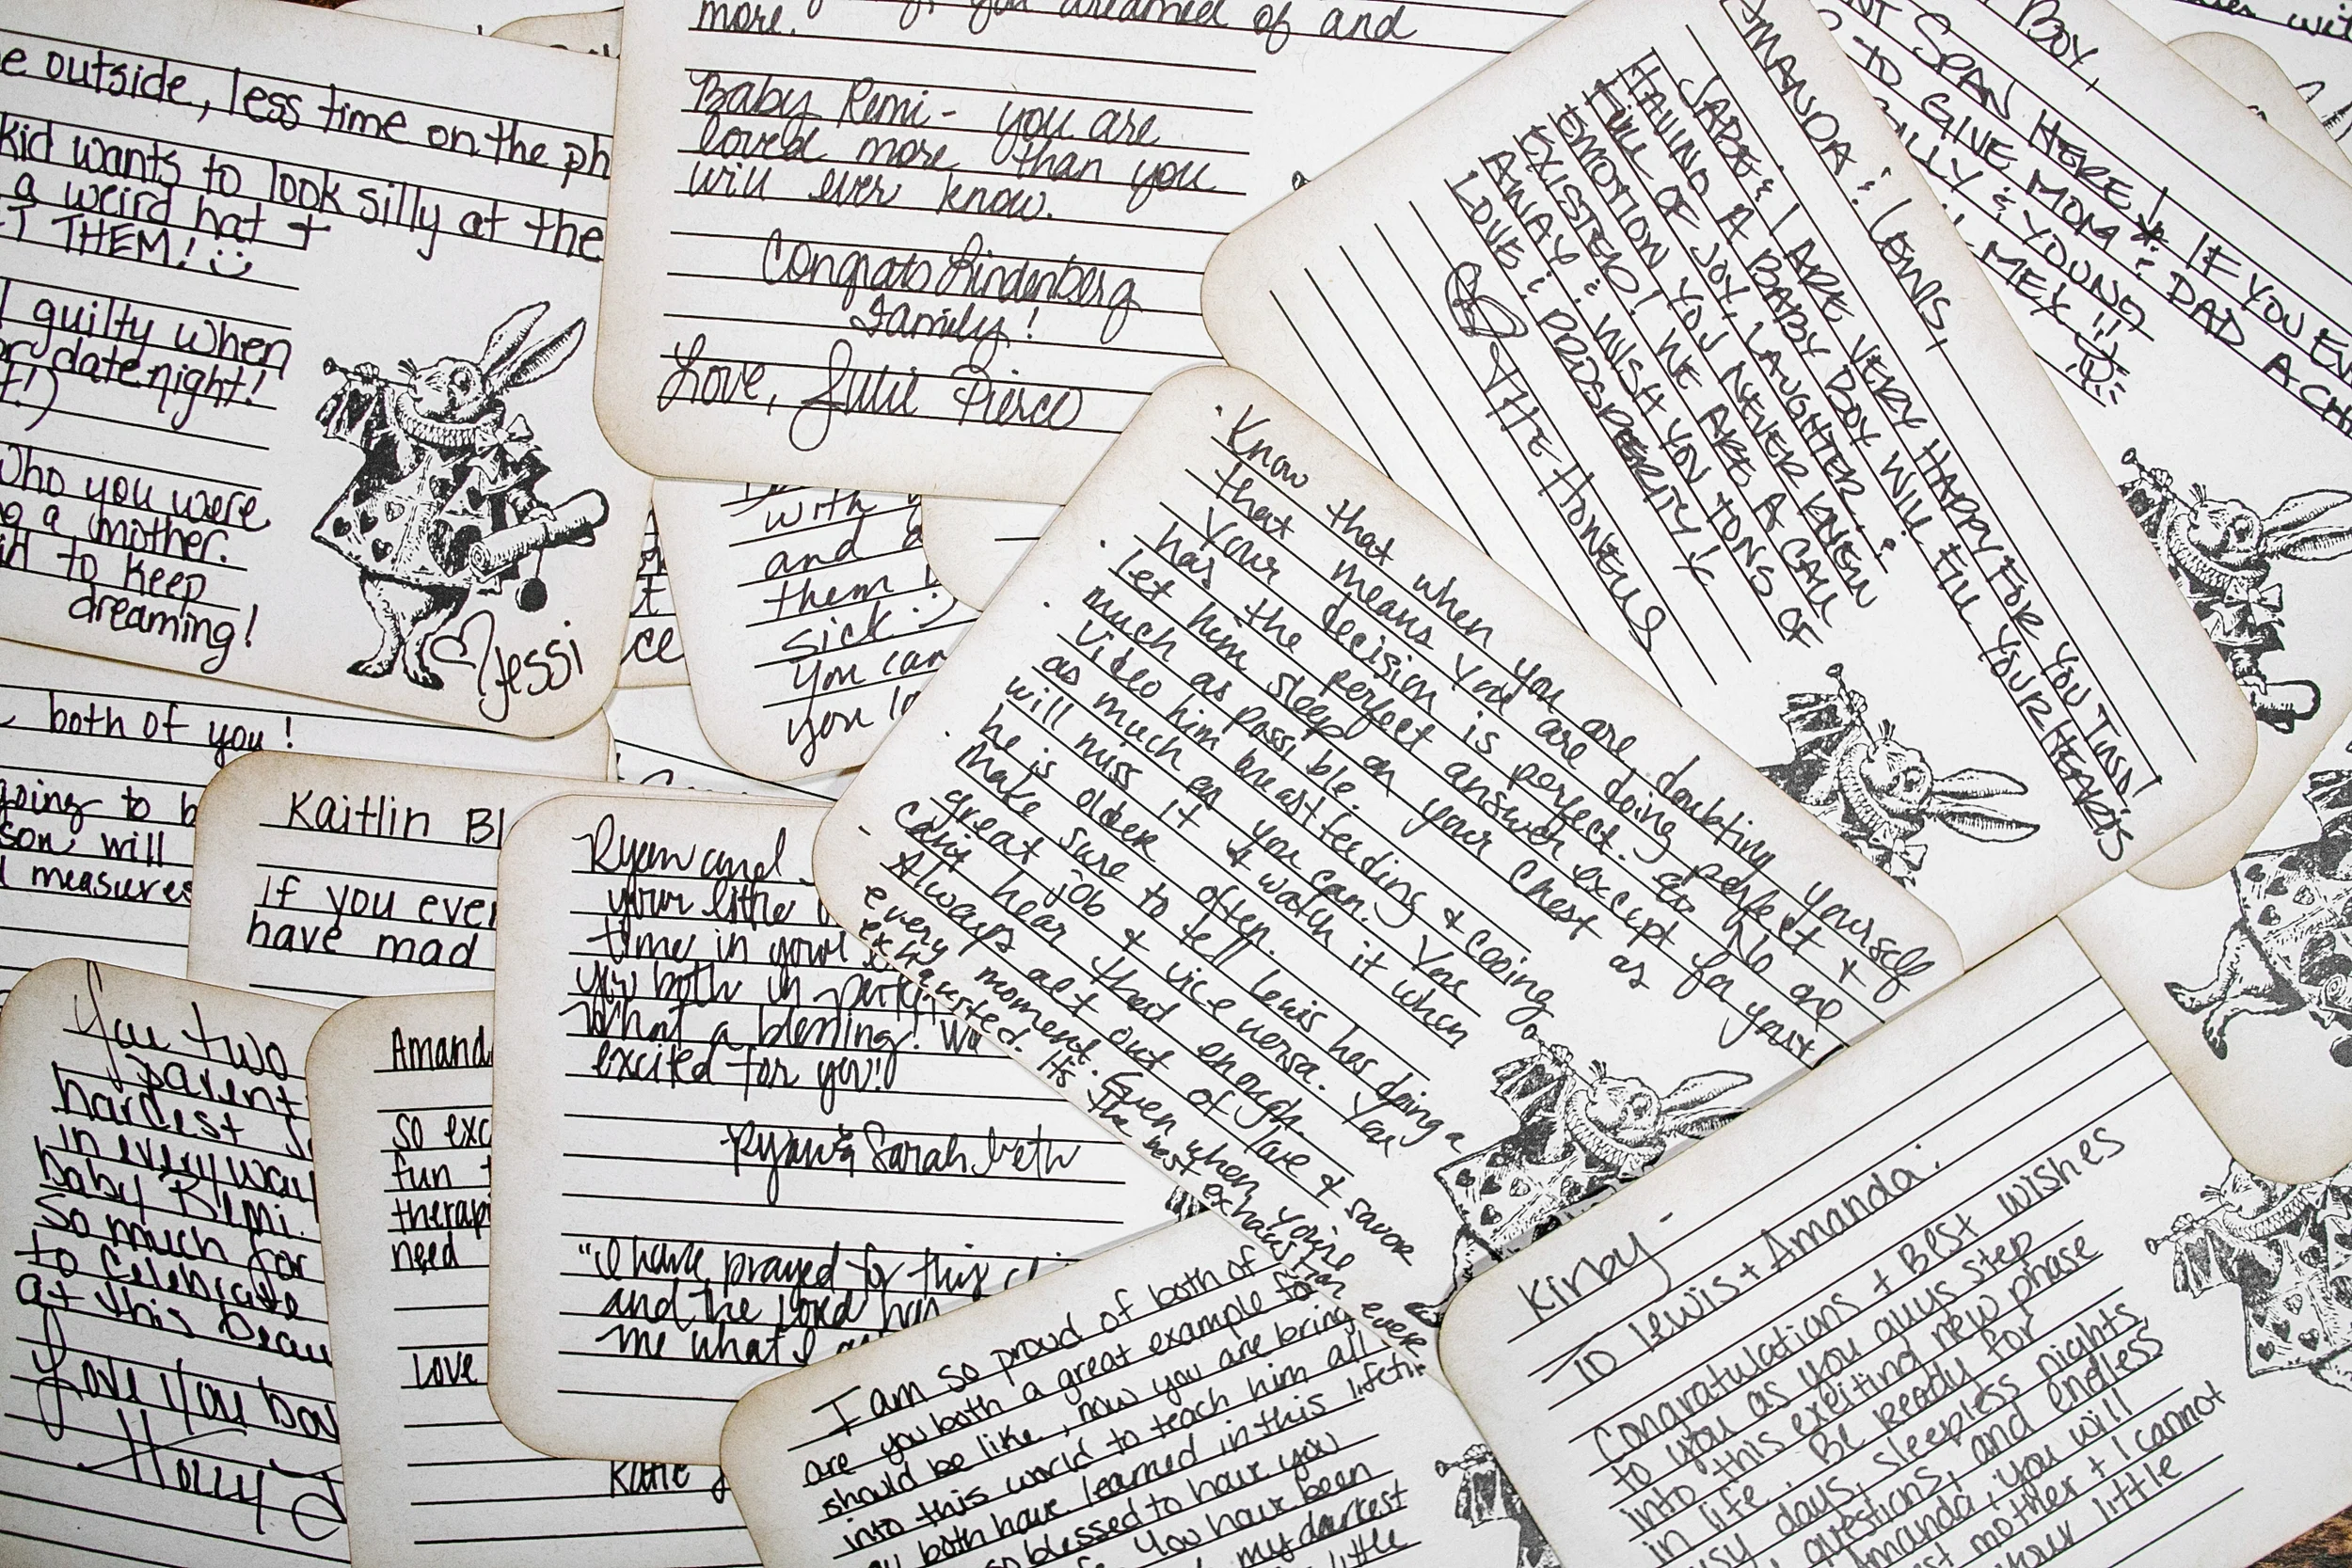 more.
you dreamed of and
Baby Remi - you are
loved more than you
will ever know.
Congrats Lindenberg
Family!
Love, Julie Pierce
e outside, less time on the ph
kid wants to look silly at the
a weird hat +
T THEM! :)
guilty when
or date night!
t!)
Who you were
ng a mother.
to keep
dreaming!
♡ Jessi
with
and
them
sick :)
you can
you
ce
AMANDA & LEWIS,
JABE & I ARE VERY HAPPY FOR YOU TWO!
HAVING A BABY BOY WILL FILL YOUR HEARTS
FULL OF JOY, LAUGHTER &
EMOTION YOU NEVER KNEW
EXISTED! WE ARE A CALL
AWAY & WISH YOU TONS OF
LOVE & PROSPERITY!
BOY,
SPAN HERE! IF YOU EV
TO GIVE MOM & DAD A CH
& YOUNG
MEX !!
· Know that when you are doubting yourself
that means you are doing perfect &
your decision is perfect. No one
has the perfect answer except for you!
· Let him sleep on your chest as
much as possible.
· Video him breastfeeding & cooing
as much as you can. You
will miss it & watch it when
he is older often.
· Make sure to tell Lewis he's doing a
great job & vice versa. You
can't hear that enough.
· Always act out of love & savor
every moment. Even when you're
exhausted. It's the best exhaustion ever
both of you!
going to b
son will
measures
Kaitlin Bl
If you ever
have mad
You two
parent
hardest
in every way
baby Remi.
So much for
to celebrate
at this beau
Love you bo
Holly
Amand
So exc
fun
therapi
need
Love
Katie
Ryan and
your little
time in your
you both in
What a blessing! We
excited for you!
Ryan & Sarah Beth
"I have prayed for this
and the Lord has
me what I
I am so proud of both of
are you both a great example for
should be like, now you are bring
into this world to teach him all
both have learned in this lifetim
so blessed to have you
You have been
my darkest
little
Kirby -
To Lewis + Amanda:
Congratulations + Best wishes
to you as you guys step
into this exciting new phase
in life. Be ready for
days, sleepless nights,
questions, and endless
Amanda, you will
mother + I cannot
your little